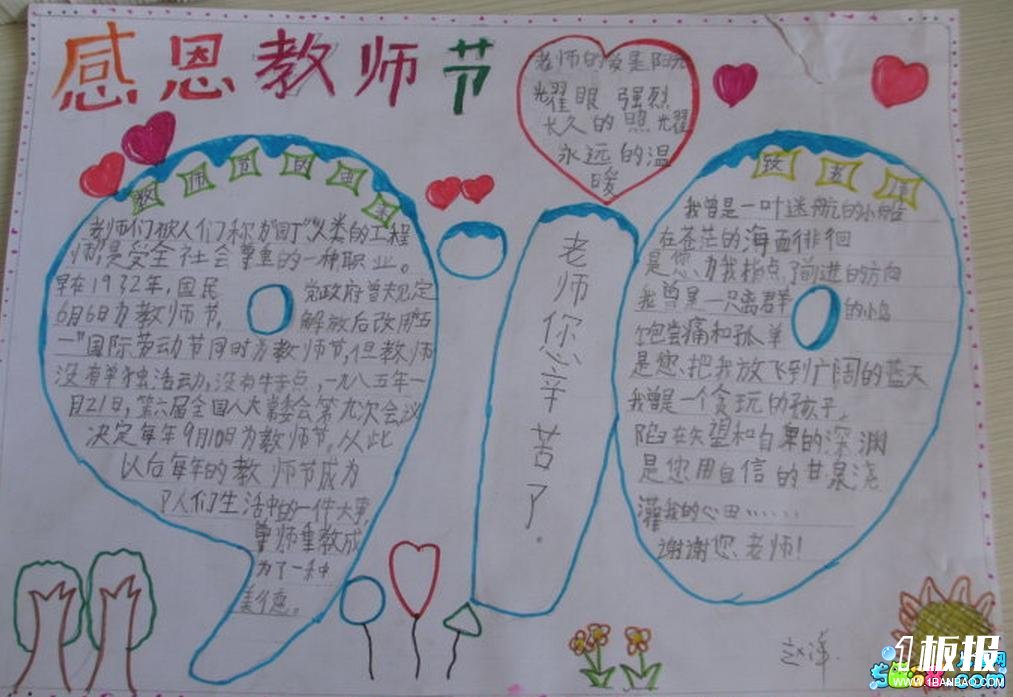 感恩教师节
老师的爱是阳光
耀眼 强烈
长久的照耀
永远的温
暖
教师节的由来
老师们被人们称为"园丁""人类的工程
师",是受全社会尊重的一种职业。
早在1932年,国民
党政府曾规定
6月6日为教师节,
解放后改用"五
一"国际劳动节同时为教师节,但教师
没有单独活动,没有特点,一九八五年一
月21日,第六届全国人大常委会第九次会议
决定每年9月10日为教师节,从此
以后每年的教师节成为
了人们生活中的一件大事,
尊师重教成
为了一种
美德。
老师您辛苦了.
致老师
我曾是一叶迷航的小船
在苍茫的海面徘徊
是您,为我指点了前进的方向
我曾是一只离群
的小鸟
饱尝痛和孤单
是您,把我放飞到广阔的蓝天
我曾是一个贪玩的孩子,
陷在失望和自卑的深渊
是您用自信的甘泉浇
灌我的心田……
谢谢您,老师!
1板报
WWW.1BANBAO.COM